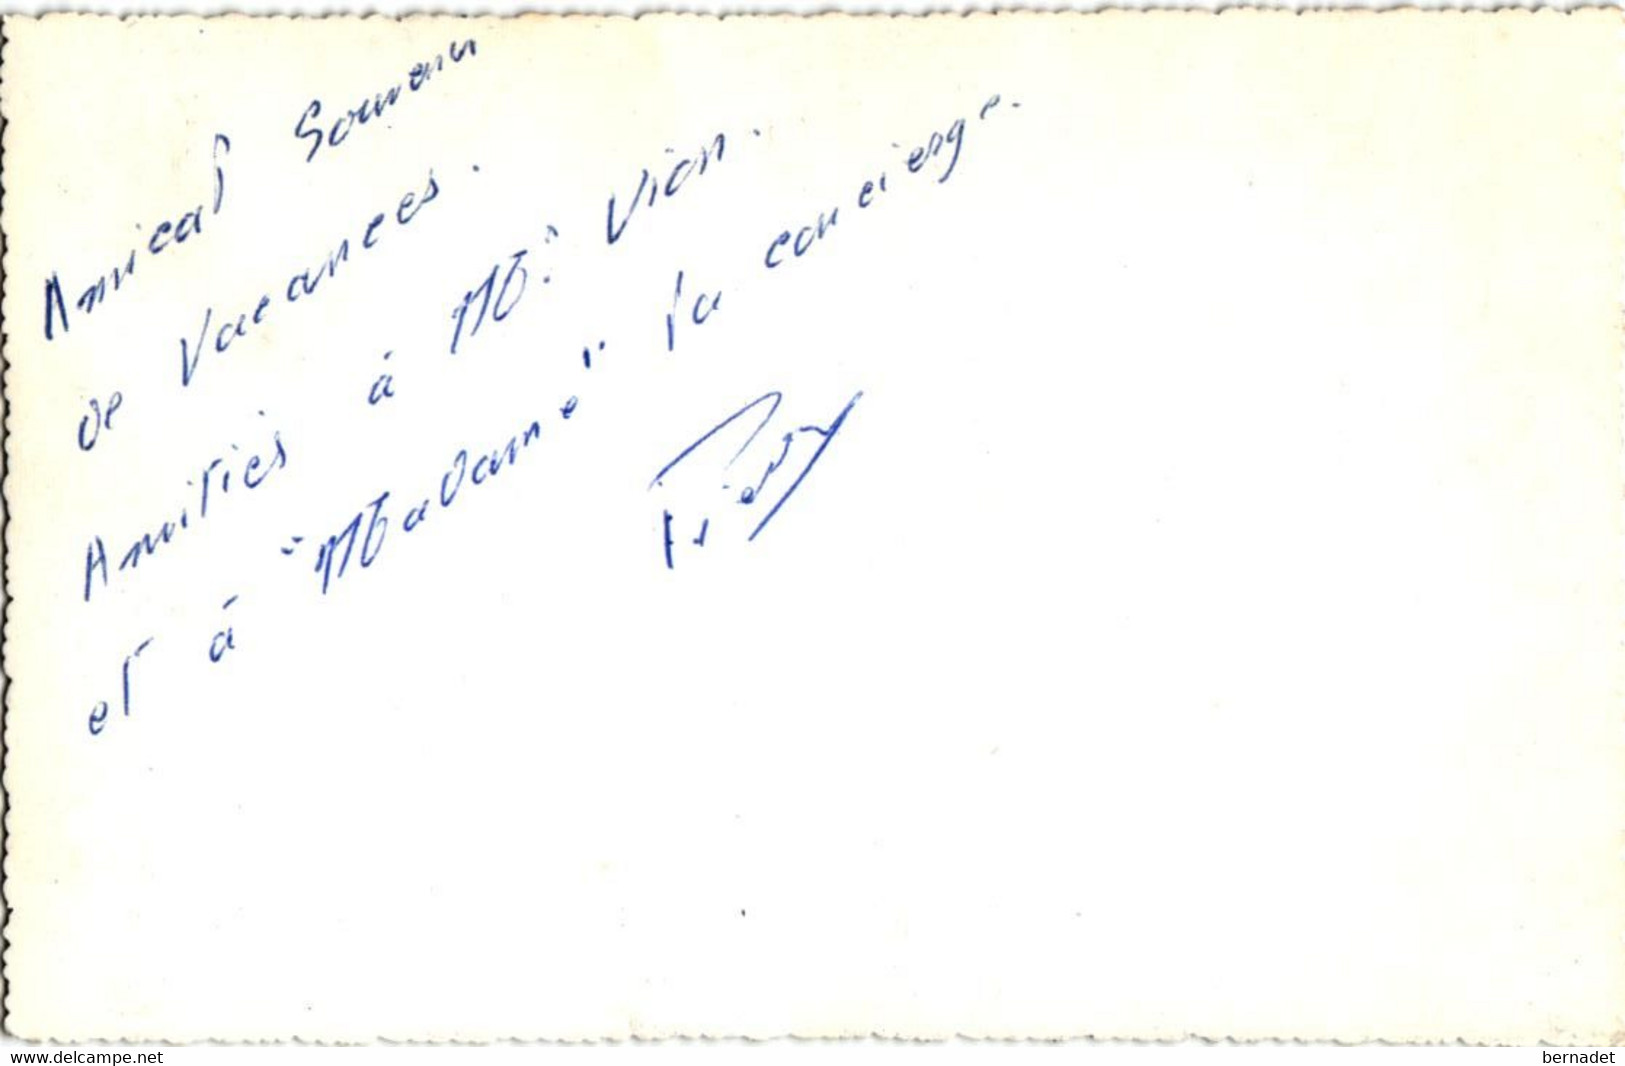 Amical Souvenir
de Vacances.
Amitiés à Mr Vion.
et à "Madame" la concierge.
www.delcampe.net
bernadet